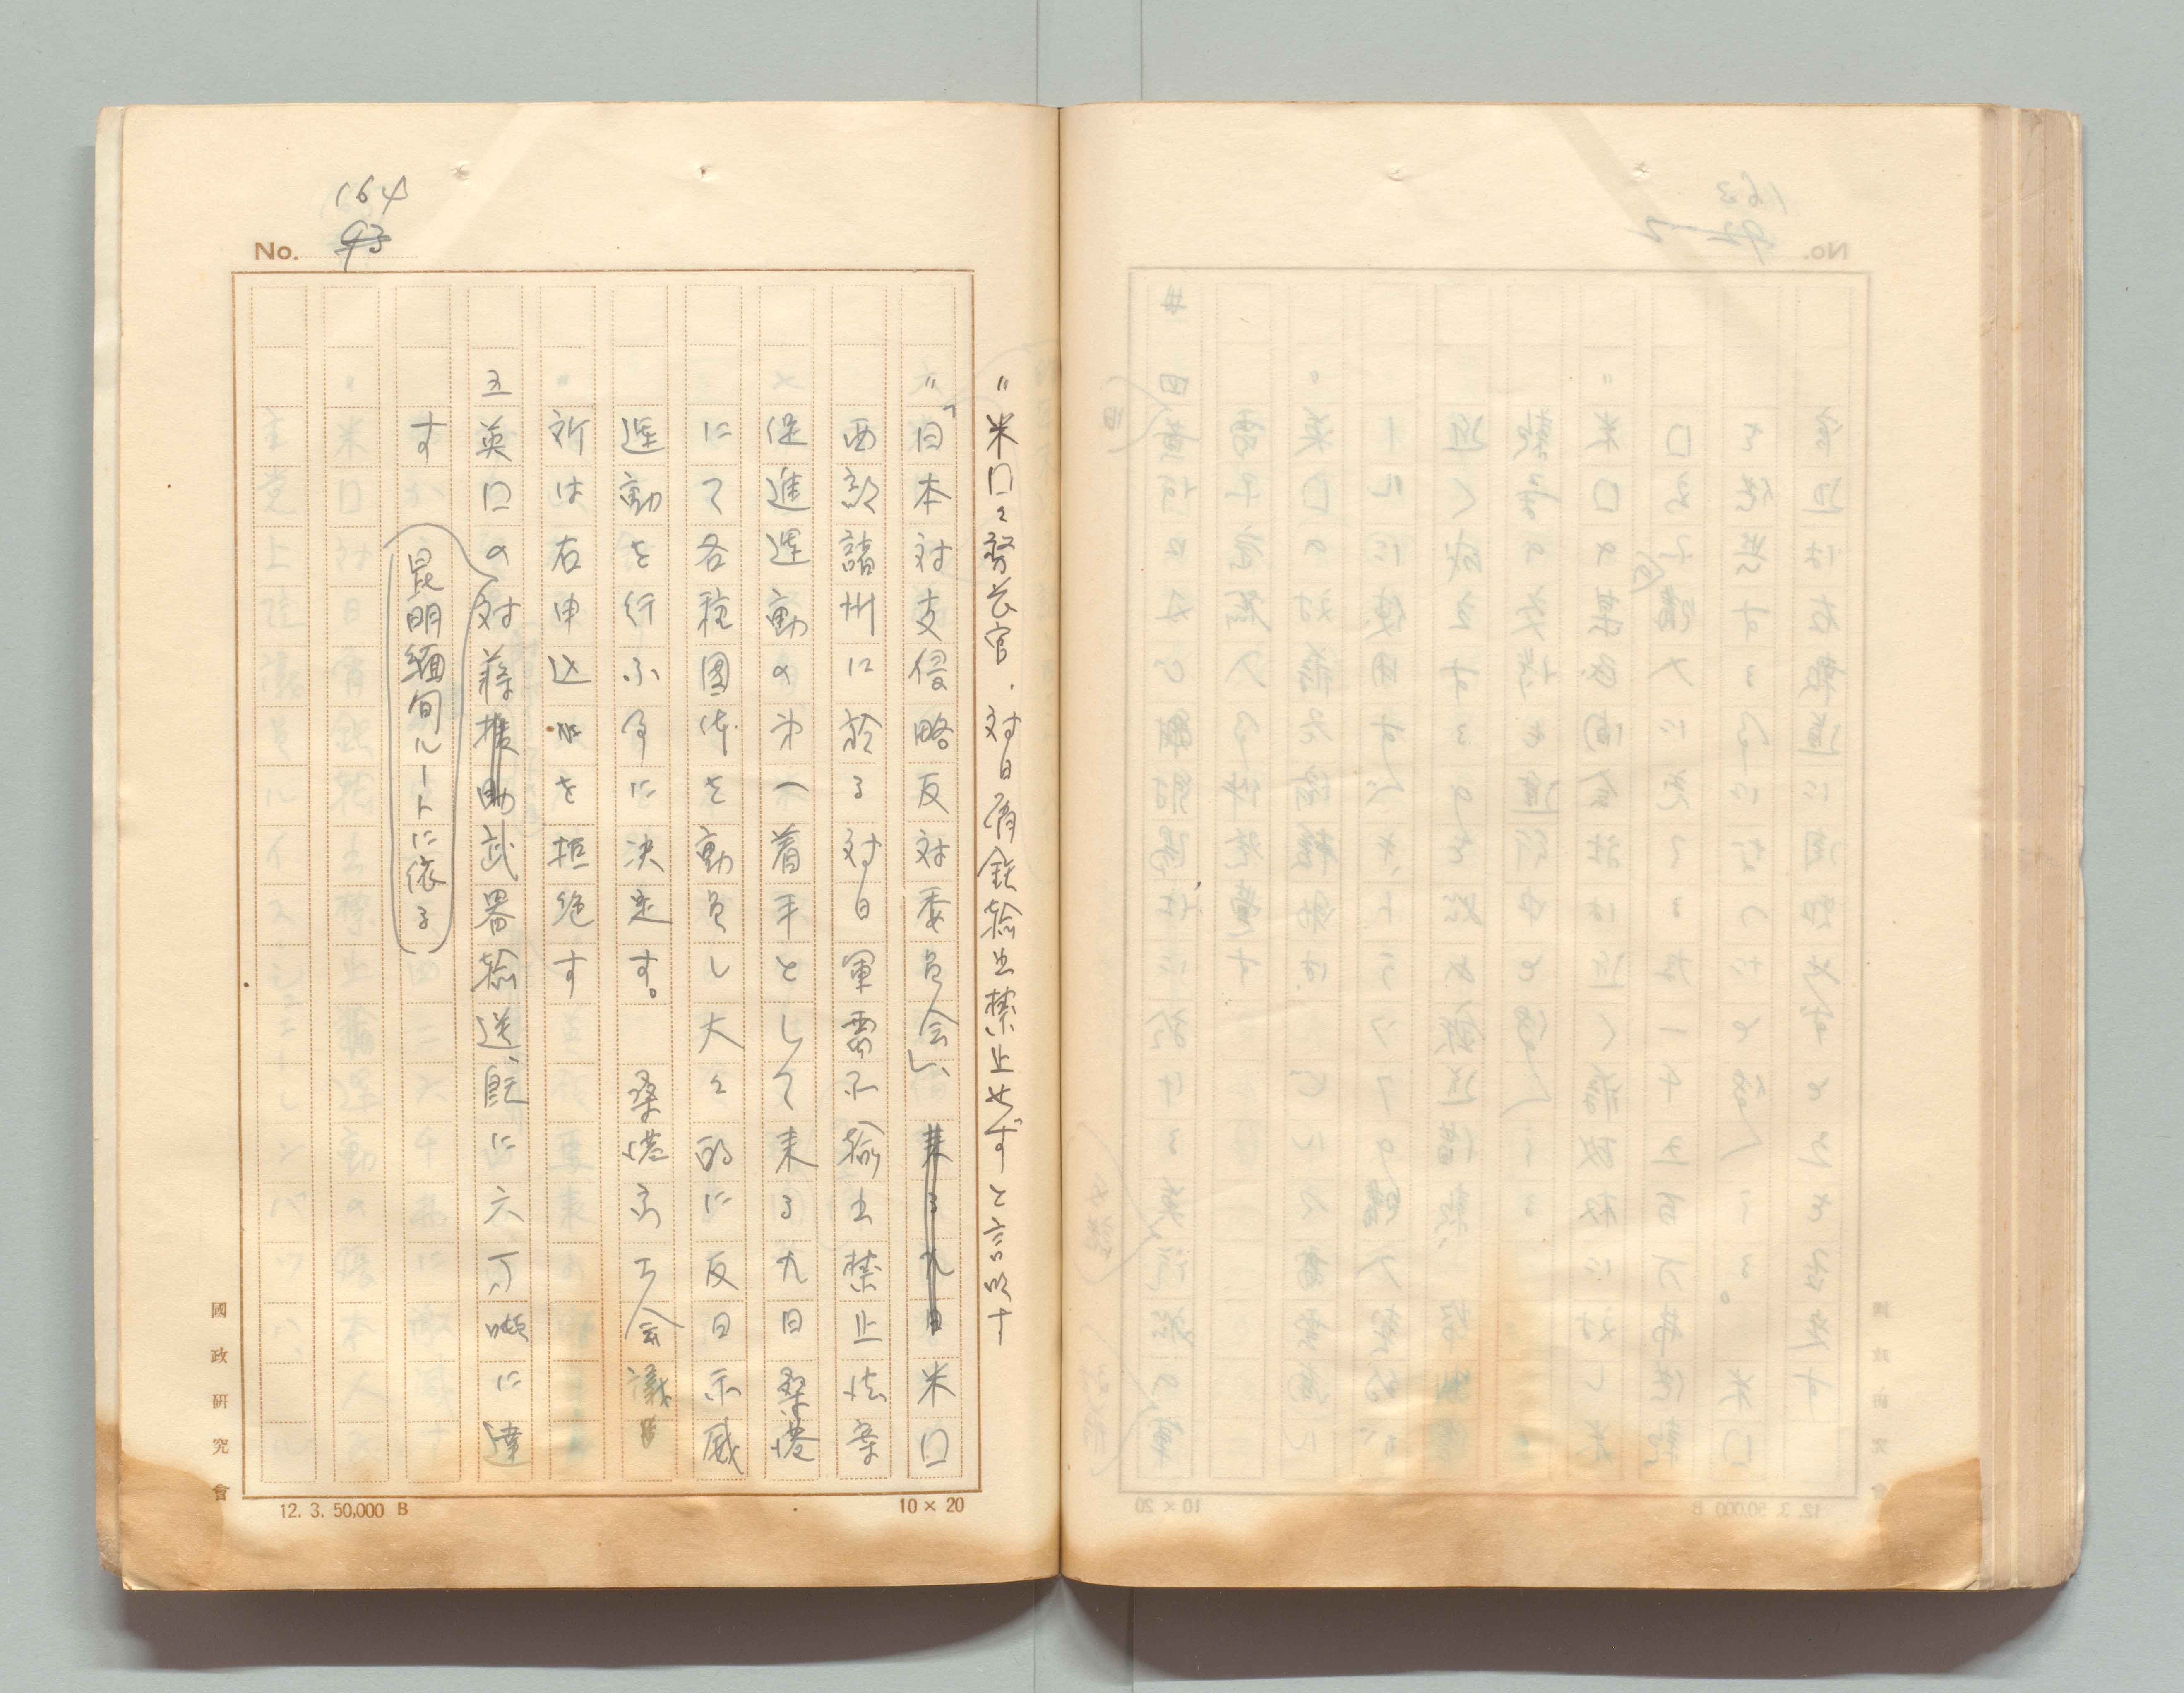 164
No. 93
〃米口々務長官、対日屑鉄輸出禁止せずと言明す
〃「日本対支侵略反対委員会」、来る九日米口
西部諸州に於る対日軍需品輸出禁止法案
促進運動の第一着手として来る九日桑港
にて各種団体を動員し大々的に反日示威
運動を行ふ事に決定す。 桑港市々会議
所は右申込を拒絶す
五英口の対蒋援助武器輸送、既に六万噸に達
す
(昆明緬甸ルートに依る)
國政研究會
12. 3. 50,000 B
10×20